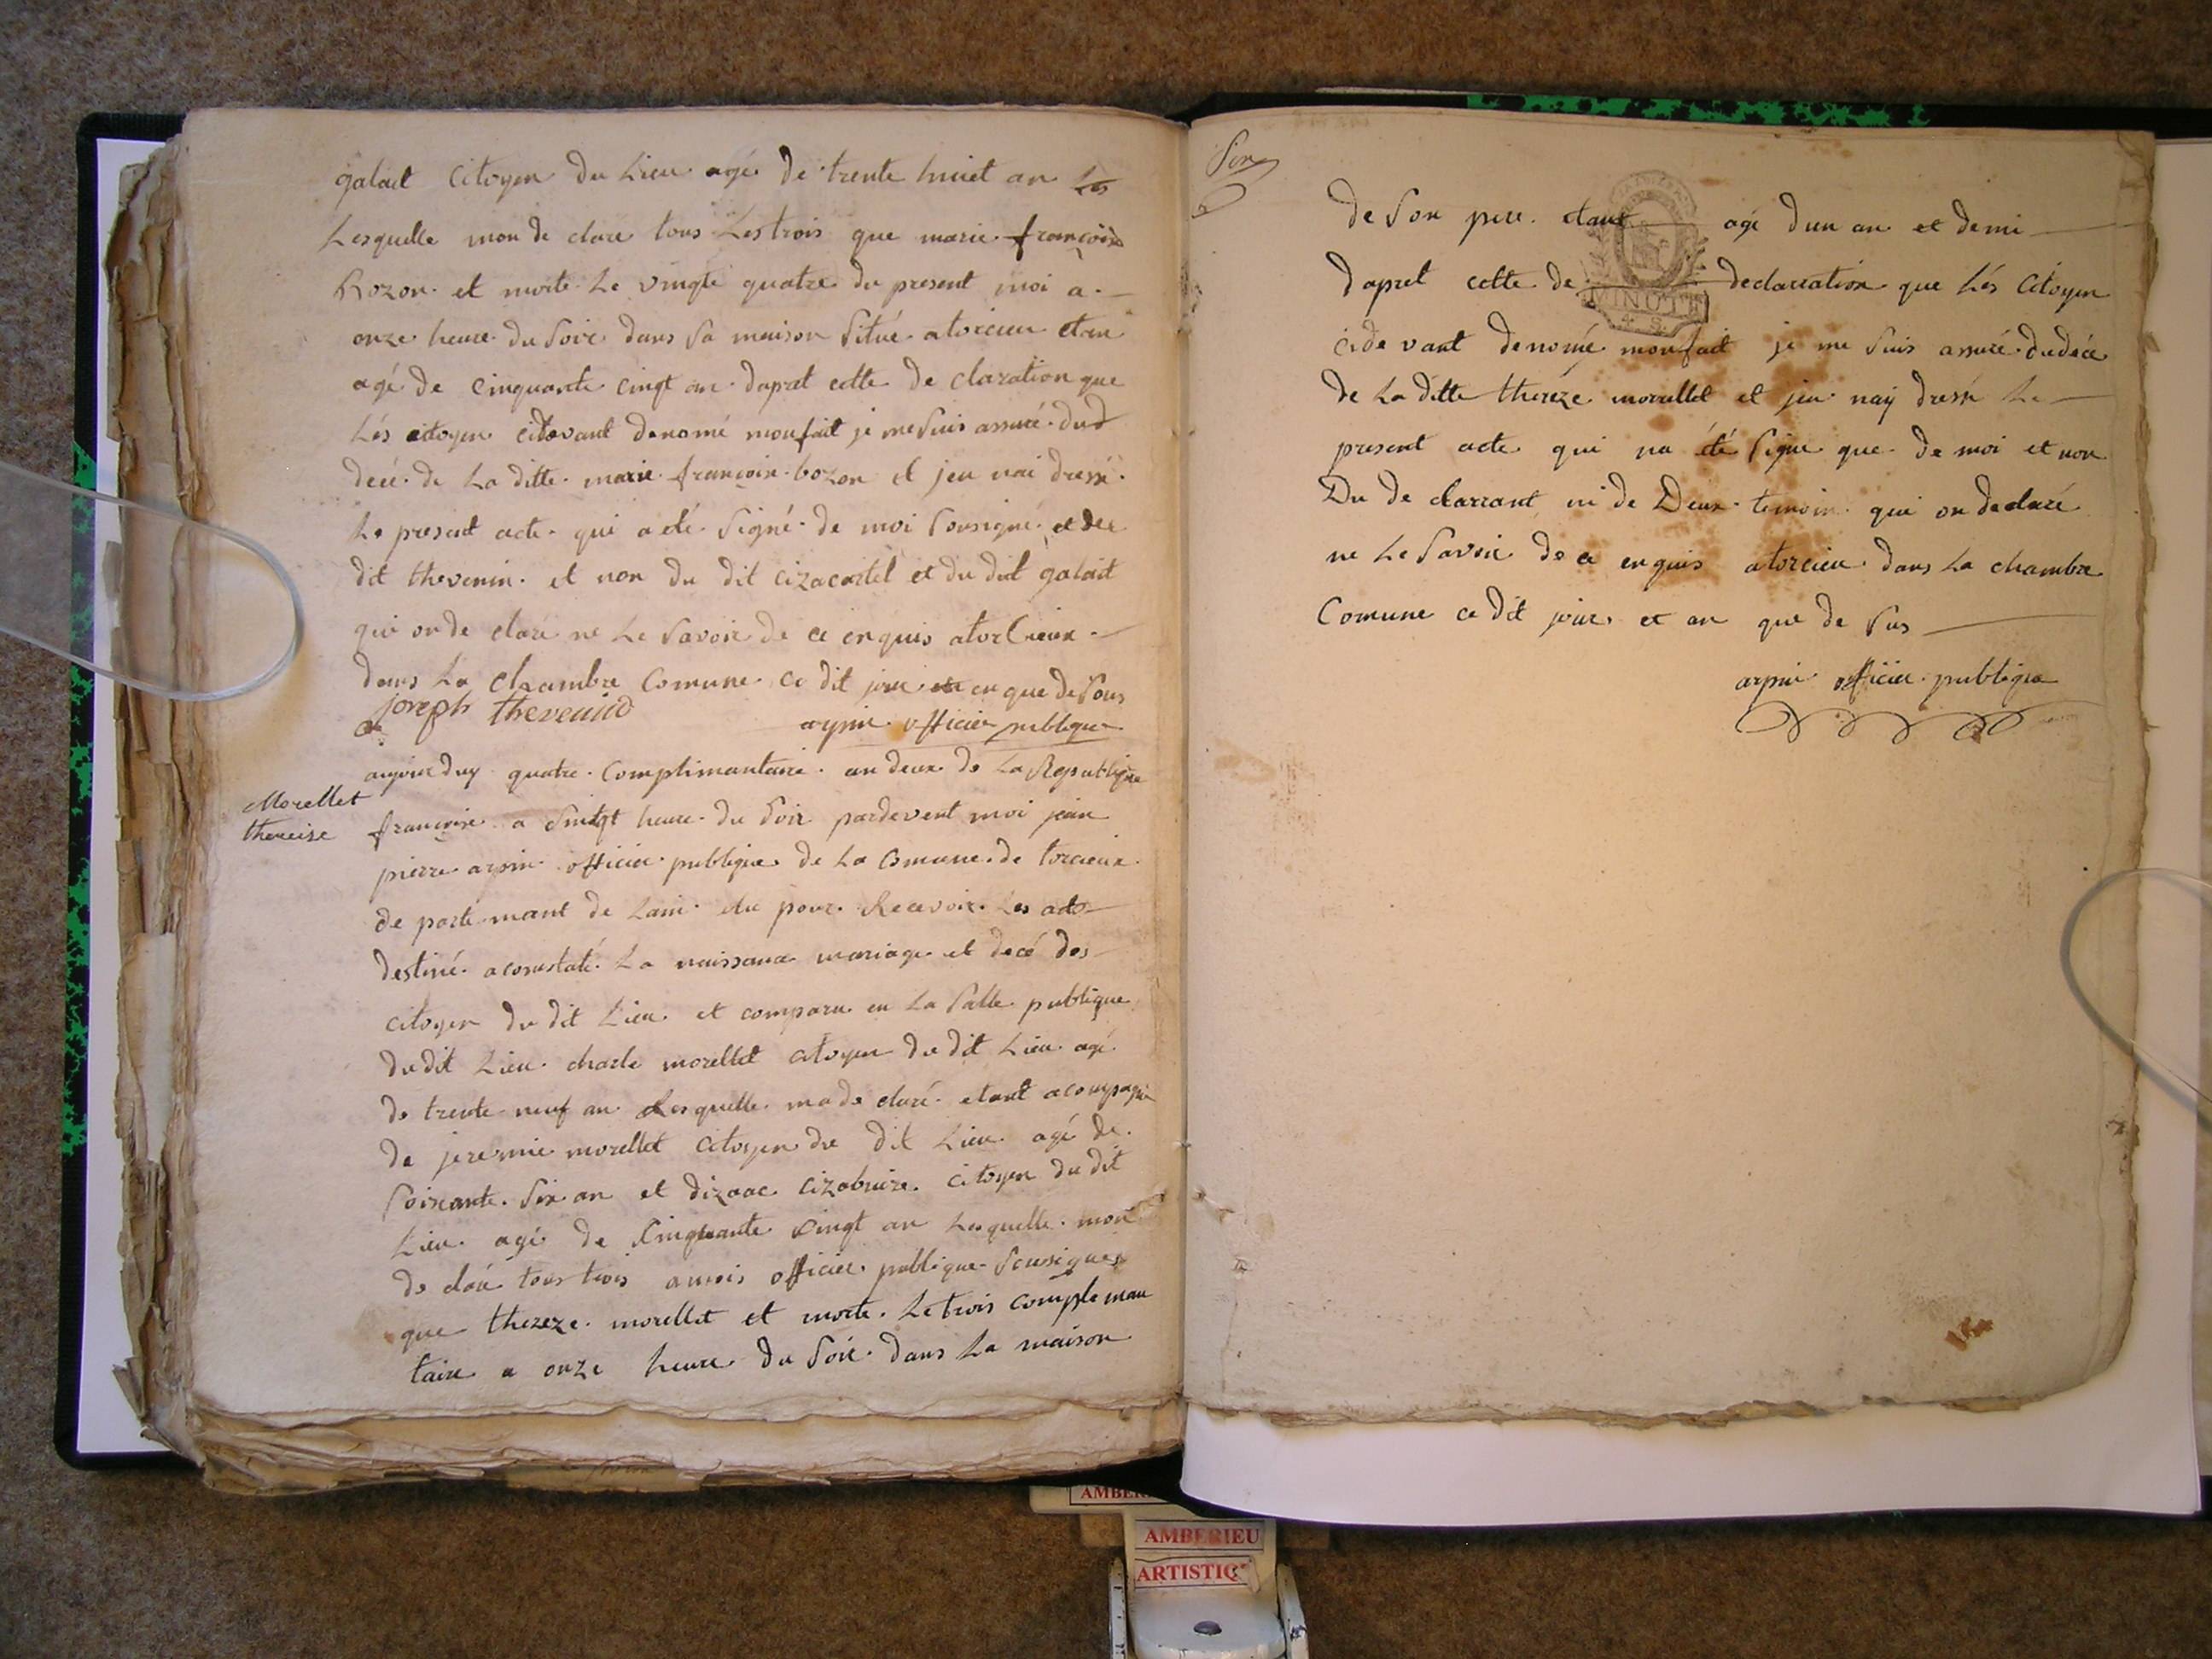 galait citoyen du Lieu agé de trente huiet an Les
Lesquelle mon de clare tous Les trois que marie françoise
Bozon et morte Le vingte quatre du present moi a
onze heure du Soire dans Sa maison Situé atorcieu etan
agé de cinquante cingt an dapret cette de claration que
Lés citoyen cidevant denomé monfait je me Suis assuré dud
decé de La ditte marie françoise bozon et jen nai dressé
Le present acte qui a été Signé de moi Sousigné et de
dit thevenin et non du dit cizacartel et du dit galait
qui onde claré ne Le Savoir de ce enquis atorcieux
dans La chambre Comune ce dit jour et en que de Sous
joseph thevenin
arpin officier publique
Morellet
thereise
aujourduy quatre Complimantaire an deux de La Republique
françoise a Sintqt heure du Soir pardevent moi jean
pierre arpin officier publique de La Comune de torcieux
de parte mant de Lain élu pour Recevoir Les acte
destiné aconstaté La naissance mariage et decé des
citoyen du dit Lieu et comparu en La Salle publique
du dit Lieu charle morellet citoyen du dit Lieu agé
de trente neuf an Lesquelle ma de claré etant acompagné
de jeremie morellet citoyen du dit Lieu agé de
Soixante Six an et dizaac cizabuire citoyen du dit
Lieu agé de Cinquante cingt an Lesquelle mon
de claré tous trois a mois officier publique Sousigues
que thereze morellet et morte Le trois compleman
taire a onze heure du Soir dans La maison
de Son pere etant agé dun an et demi
dapret cette de declaration que Lés Citoyen
MINUTE
4. S.
cide vant denomé monfait je me Suis assuré dudéce
de La ditte thereze morellet et jen naÿ dressé Le
present acte qui na été Signe que de moi et non
Du de clarrant ni de Deux temoin qui on declaré
ne Le Savoir de ce enquis atorcieu dans La chambre
Comune ce dit jour et an que de Sus
arpin officier publique
AMBERIEU
ARTISTIQ